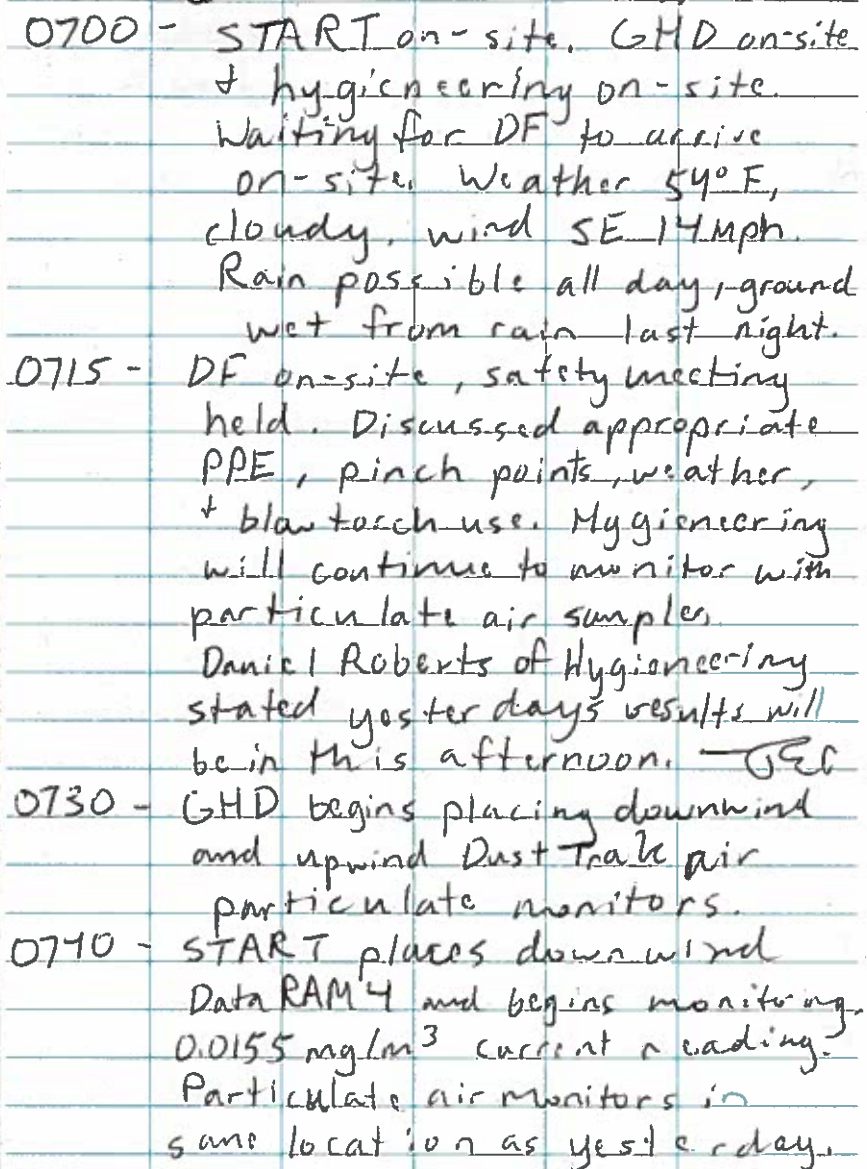 0700 - START on-site. GHD on-site
+ hygieneering on-site.
Waiting for DF to arrive
on-site. Weather 54° F,
cloudy, wind SE 14 mph.
Rain possible all day, ground
wet from rain last night.
0715 - DF on-site, safety meeting
held. Discussed appropriate
PPE, pinch points, weather,
+ blow torch use. Hygieneering
will continue to monitor with
particulate air samples.
Daniel Roberts of Hygieneering
stated yesterdays results will
be in this afternoon.
0730 - GHD begins placing downwind
and upwind DustTrak air
particulate monitors.
0740 - START places downwind
DataRAM 4 and begins monitoring.
0.0155 mg/m³ current reading.
Particulate air monitors in
same location as yesterday.